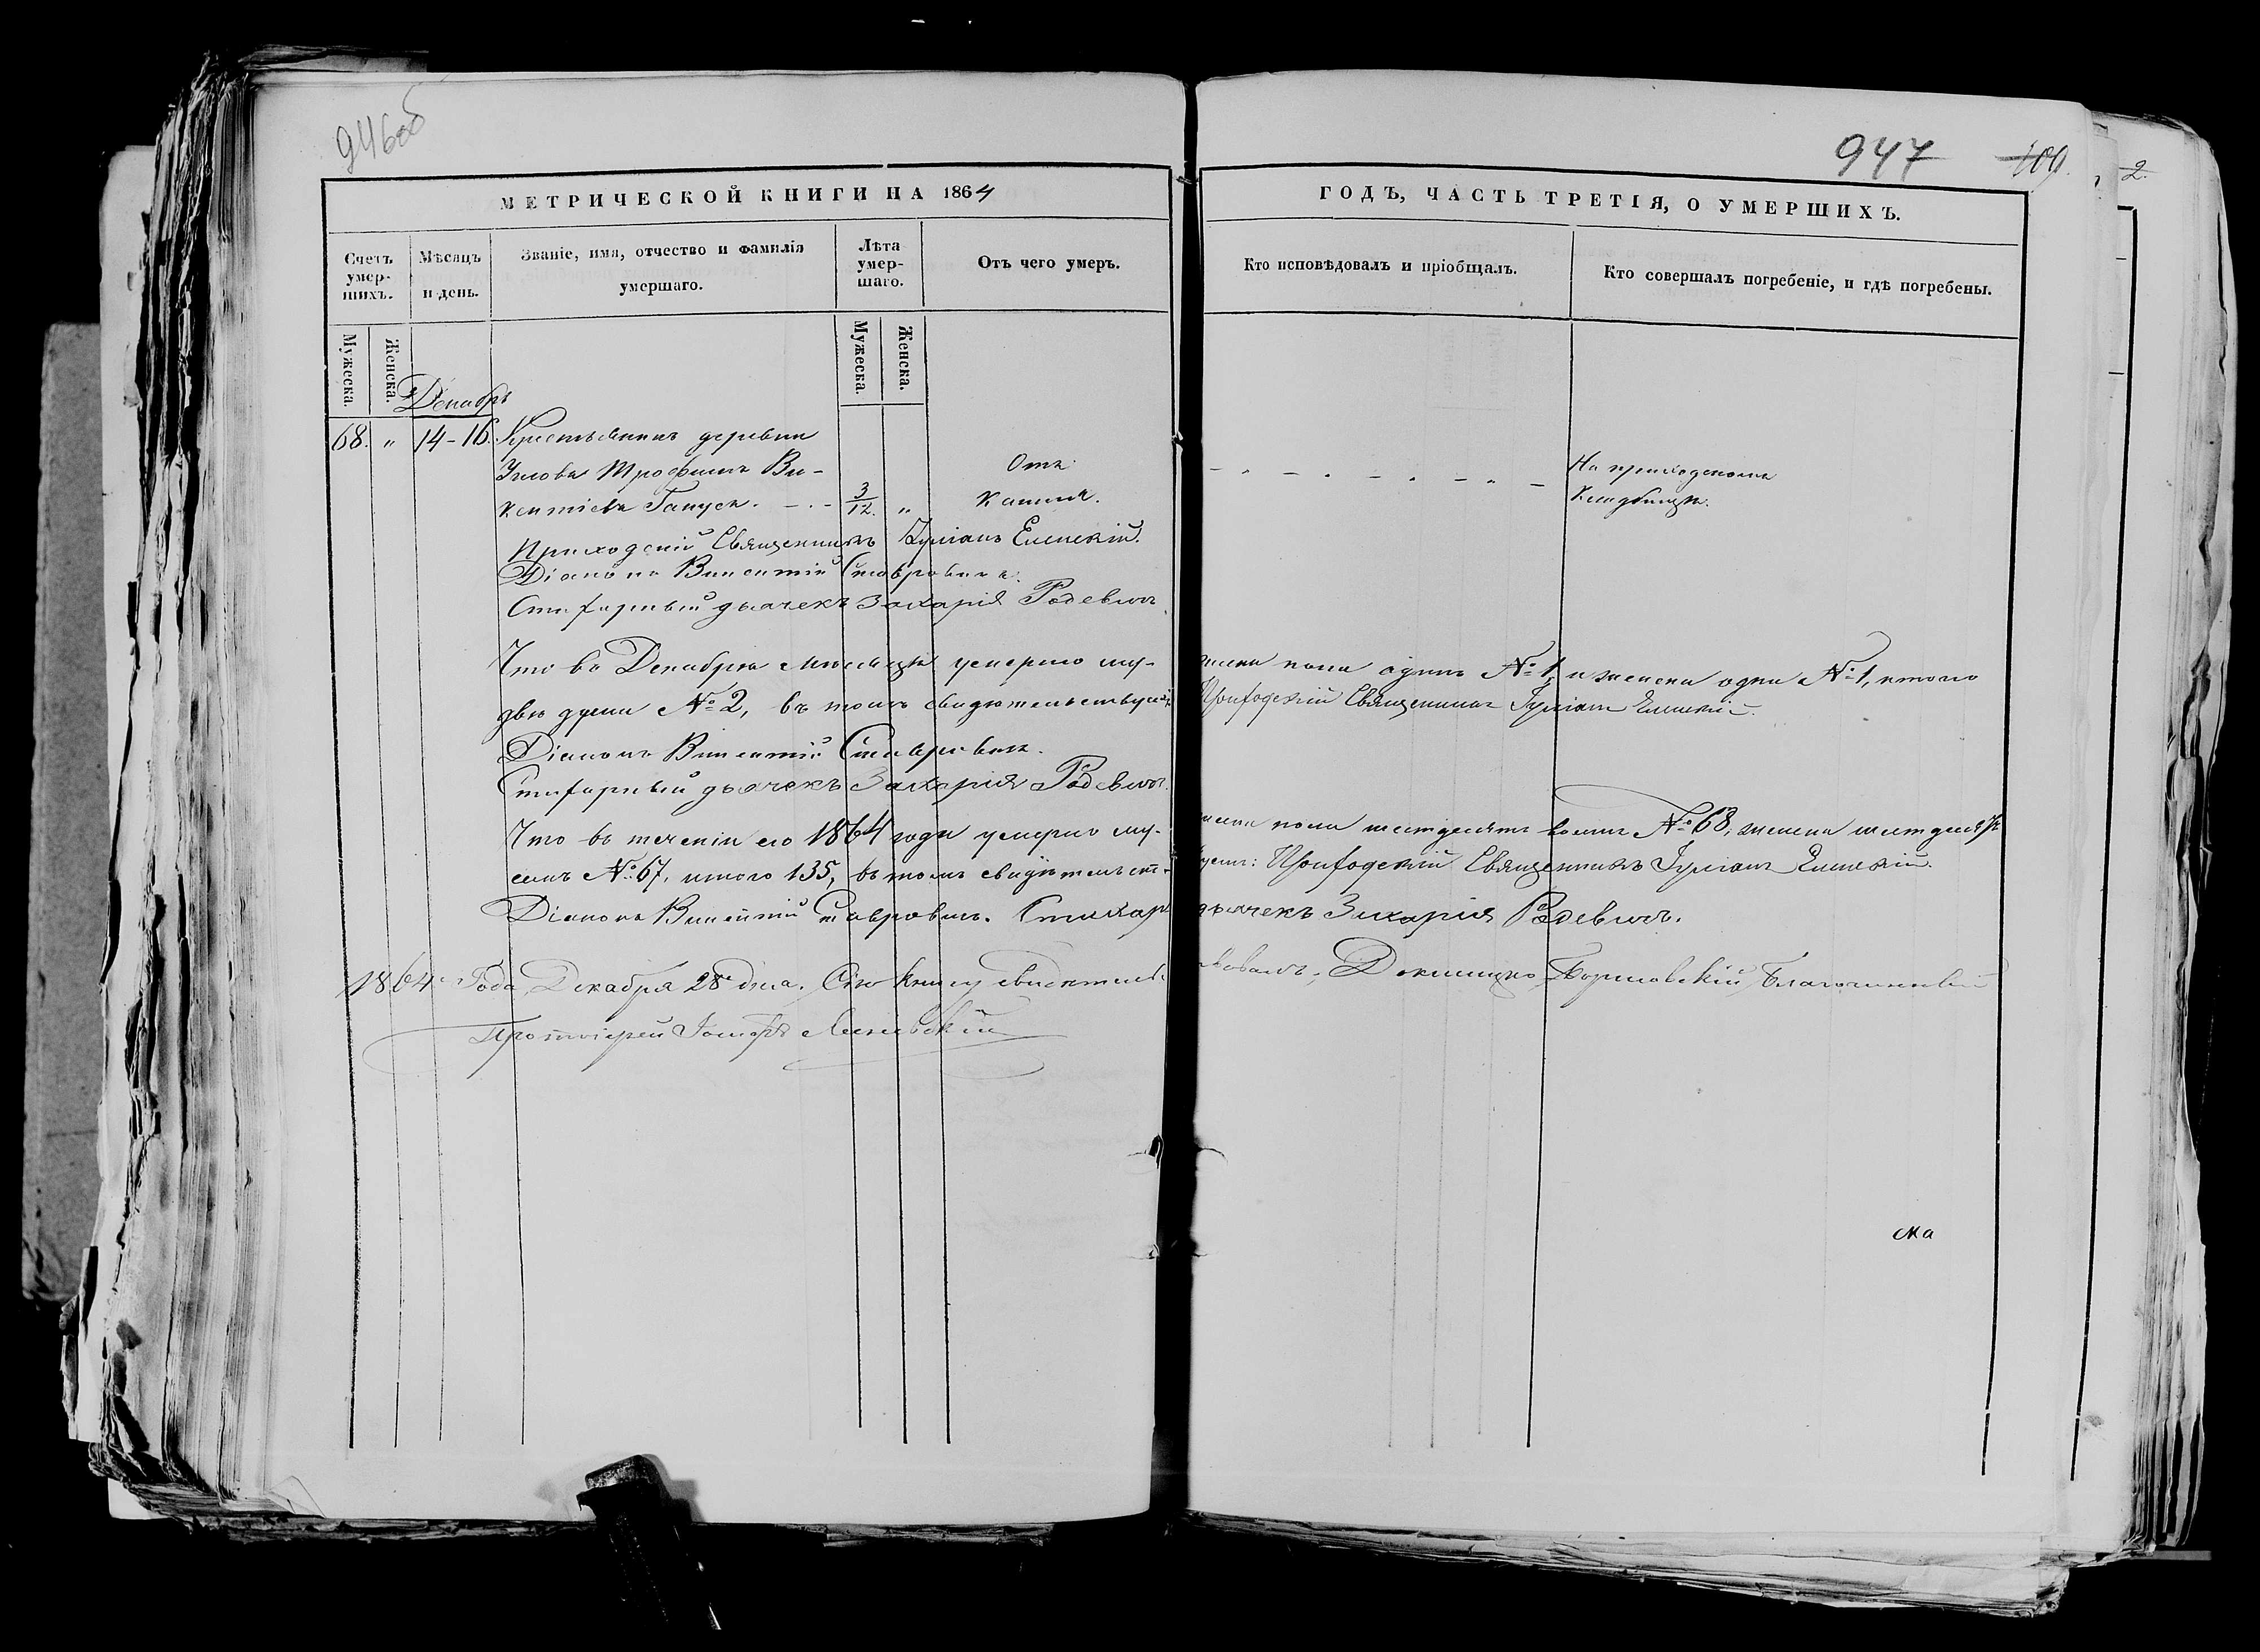 946об
947
109.
2.
МЕТРИЧЕСКОЙ КНИГИ НА 1864
ГОДЪ, ЧАСТЬ ТРЕТІЯ, О УМЕРШИХЪ.
Счетъ умер-шихъ.
Мѣсяцъ и день.
Званіе, имя, отчество и фамилія умершаго.
Лѣта умер-шаго.
Отъ чего умеръ.
Кто исповѣдовалъ и пріобщалъ.
Кто совершалъ погребеніе, и гдѣ погребены.
Мужеска.
Женска.
Мужеска.
Женска.
Декабрь
68. „ 14-16. Крестьянинъ деревни
Трофимъ Ви-
кентіевъ 3/12. „
Отъ
кашля.
На приходскомъ
кладбищѣ.
Приходскій Священникъ Іуліанъ
Діаконъ Викентій Ставровичъ.
Стихарный дьячекъ Захарія Радевичъ
Что въ Декабрѣ мѣсяцѣ умерло му-
жеска пола одинъ № 1, и женска одна № 1, итого
двѣ души № 2, въ томъ свидѣтельствуемъ
Приходскій Священникъ Іуліанъ
Діаконъ Викентій Ставровичъ.
Стихарный дьячекъ Захарія Радевичъ.
Что въ теченіи его 1864 года умерло му-
жеска пола шестдесятъ восмь № 68, женска шестдесятъ
семъ № 67, итого 135, въ томъ свидѣтельст-
вуемъ: Приходскій Священникъ Іуліанъ
Діаконъ Викентій Ставровичъ. Стихар
дьячекъ Захарія Радевичъ.
1864 Года Декабря 28 дня. Сію книгу свидѣтель-
ствовалъ, Докшицко Борисовскій Благочинный
Протоіерей Іосифъ
ма